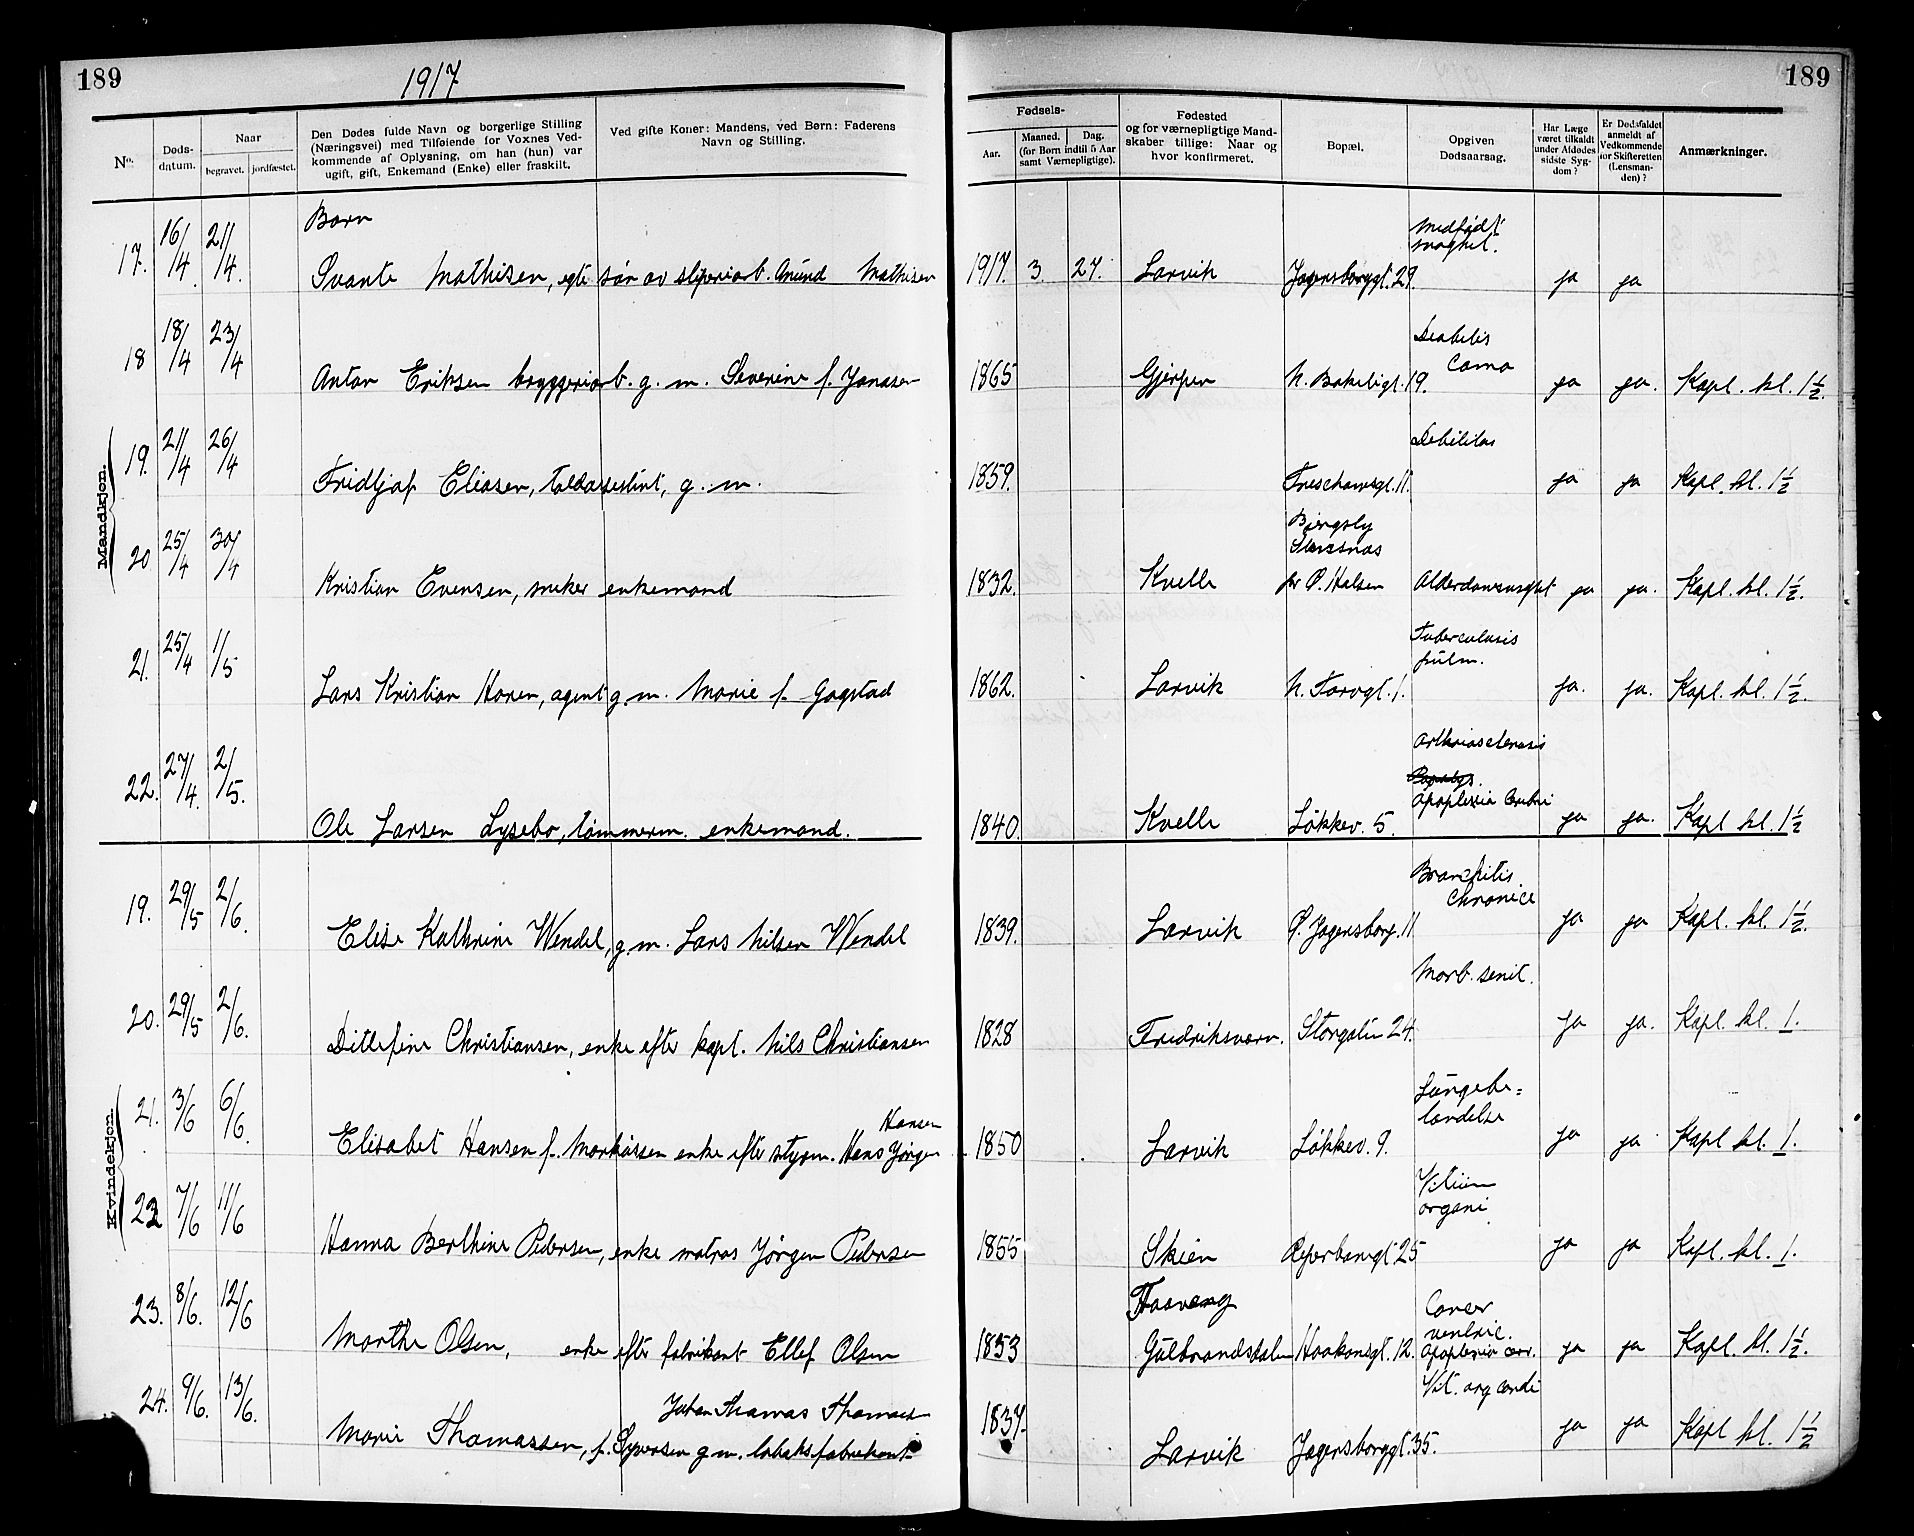 189
1917
189
No.
Dødsdatum.
Naar
begravet.
jordfæstet.
Den Dødes fulde Navn og borgerlige Stilling
(Næringsvei) med Tilføiende for Voxnes Ved-
kommende af Oplysning, om han (hun) var
ugift, gift, Enkemand (Enke) eller fraskilt.
Ved gifte Koner: Mandens, ved Børn: Faderens
Navn og Stilling.
Fødsels-
Aar.
Maaned.
Dag.
(for Børn indtil 5 Aar
samt Værnepligtige).
Fødested
og for værnepligtige Mand-
skaber tillige: Naar og
hvor konfirmeret.
Bopæl.
Opgiven
Dødsaarsag.
Har Læge
været tilkaldt
under Afdødes
sidste Syg-
dom?
Er Dødsfaldet
anmeldt af
Vedkommende
for Skifteretten
(Lensman-
den)?
Anmærkninger.
Mandkjøn.
Barn
17. 16/4. 21/4. Svante Mathisen, egte søn av sliperiarb. Amund Mathisen 1917. 3. 27. Larvik Jegersborggt. 29. Medfødt svaghet. ja ja
18 18/4 23/4 Anton Eriksen bryggeriarb. g. m. Severine f. Jonasen 1865 Gjerpen N. Bakeligt. 19. Diabetis Coma ja ja. Kapl. kl. 1½.
19. 21/4 26/4 Fridtjof Eliasen, toldassistent, g. m. 1859. Treschowsgt. 11. Debilitas ja ja Kapl. kl. 1½
20 25/4 30/4 Kristian Evensen, sneker enkemand 1832. Kvelle Bjergsly pr Ø. Halsen ja ja. Kapl. kl. 1½.
21. 25/4 1/5 Lars Kristian Horen, agent g. m. Marie f. Gogstad 1862. Larvik N. Torvgt. 1. Tuberculosis pulm. ja. ja. Kapl. kl. 1½.
22. 27/4. 2/5. Ole Larsen Lysebo, tømmerm. enkemand. 1840. Kvelle Løkkev. 5. Arthriosclerosis Apoplexia Cerebri ja ja. Kapl kl. 1½
Kvindekjøn.
19. 29/5 2/6. Elise Kathrine Wendel, g. m. Lars Nilsen Wendel 1839. Larvik Ø. Jegersborg. 11 Bronchitis Chronica ja ja Kapl. kl. 1½.
20. 29/5 2/6. Ditlefine Christiansen, enke efter kapt. Nils Christiansen 1828 Fredriksvern. Storgaten 24. Morb. senit. ja ja. Kapl. kl. 1.
21. 3/6 6/6. Elisabet Hansen f. Markussen enke efter styrm. Hans Jørgen Hansen 1850 Larvik Løkkev. 9. Lungebe=tændelse ja ja Kapl kl. 1.
22 7/6 11/6 Hanna Berthine Pedersen, enke matros Jørgen Pedersen 1855 Skien Reperbanegt. 25 Vitium organi ja ja Kapl. kl. 1.
23. 8/6. 12/6 Marthe Olsen, enke efter fabrikant Ellef Olsen 1853 Gulbrandsdalen Haakonsgt. 12. Cancer ventric. Apoplexia cerr. ja ja Kapl. kl. 1½.
24. 9/6. 13/6. Marie Thomassen, f. Syversen g m. tobaksfabrikant Johan Thomas Thomassen 1837. Larvik Jegersborggt. 35. Vit. org cordi ja ja Kapl kl. 1½